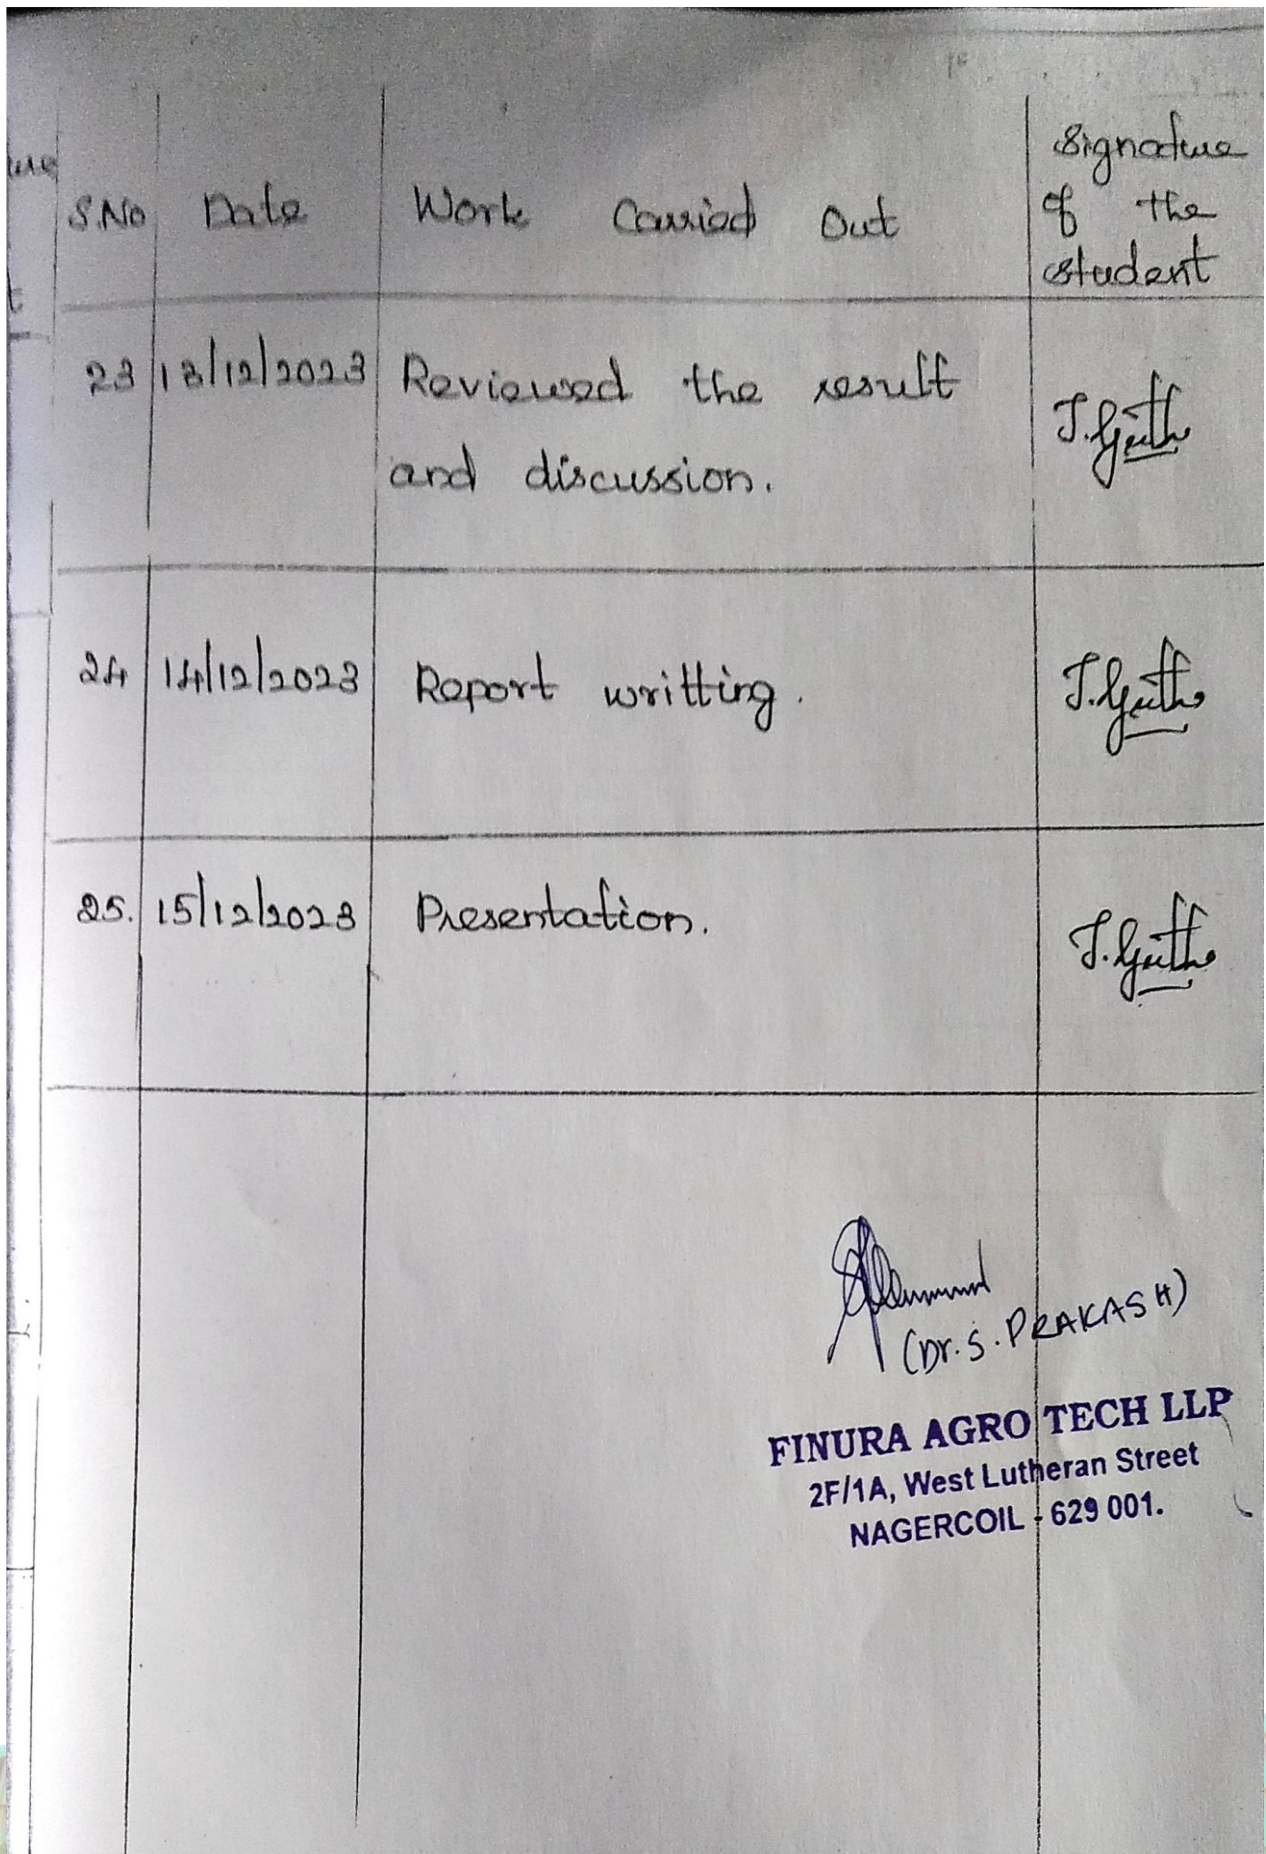 S.No Date Work Carried Out Signature of the student
23 13/12/2023 Reviewed the result
and discussion.
24 14/12/2023 Report writting.
25. 15/12/2023 Presentation.
(Dr. S. PRAKASH)
FINURA AGRO TECH LLP
2F/1A, West Lutheran Street
NAGERCOIL - 629 001.